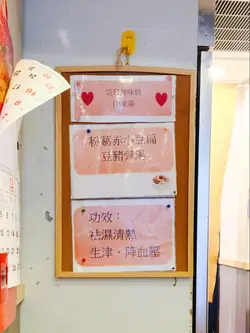 無味精
湯
粉葛赤小豆扁
豆豬骨湯
功效：
祛濕清熱
生津、降血壓